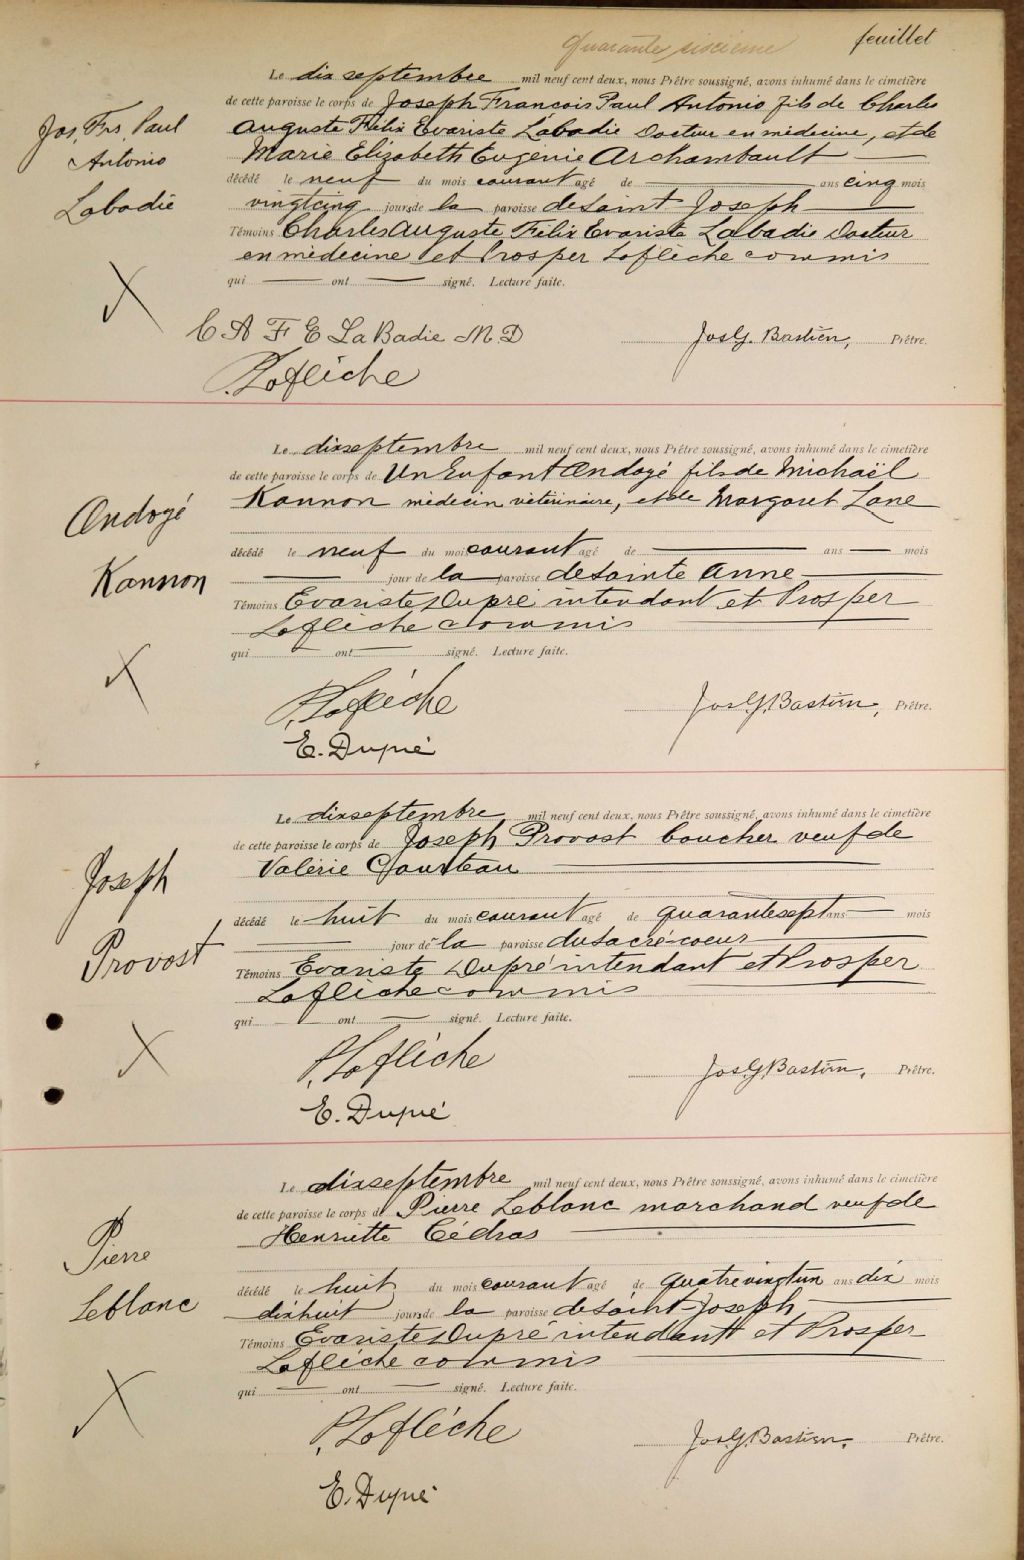 quarante sixième feuillet
Le dix septembre mil neuf cent deux, nous Prêtre soussigné, avons inhumé dans le cimetière
de cette paroisse le corps de Joseph François Paul Antonio fils de Charles
Jos, Frs, Paul
Antonio
Labadie
Auguste Félix Evariste Labadie Docteur en médecine, et de
Marie Elizabeth Eugénie Archambault
décédé le neuf du mois courant agé de ans cinq mois
vingtcinq jours de la paroisse de Saint Joseph
Témoins Charles Auguste Félix Evariste Labadie Docteur
en médecine et Prosper Laflèche commis
qui ont signé. Lecture faite.
C A F E LaBadie M D
Jos G. Bastien, Prêtre.
P. Laflèche
Le dix septembre mil neuf cent deux, nous Prêtre soussigné, avons inhumé dans le cimetière
de cette paroisse le corps de Un Enfant Ondoyé fils de Michaël
Ondoyé
Kannon
Kannon médecin vétérinaire, et de Margaret Lane
décédé le neuf du mois courant agé de ans mois
jour de la paroisse de Sainte Anne
Témoins Evariste Dupré intendant et Prosper
Laflèche commis
qui ont signé. Lecture faite.
P. Laflèche
Jos G. Bastien, Prêtre.
E. Dupré
Le dix septembre mil neuf cent deux, nous Prêtre soussigné, avons inhumé dans le cimetière
de cette paroisse le corps de Joseph Provost boucher veuf de
Joseph
Provost
Valérie Courteau
décédé le huit du mois courant agé de quarante sept ans mois
jour de la paroisse du Sacré-coeur
Témoins Evariste Dupré intendant et Prosper
Laflèche commis
qui ont signé. Lecture faite.
P. Laflèche
Jos. G. Bastien, Prêtre.
E. Dupré
Le dix septembre mil neuf cent deux, nous Prêtre soussigné, avons inhumé dans le cimetière
de cette paroisse le corps de Pierre Leblanc marchand veuf de
Pierre
Leblanc
Henriette Cédras
décédé le huit du mois courant agé de quatrevingt un ans dix mois
dixhuit jours de la paroisse de Saint-Joseph
Témoins Evariste Dupré intendant et Prosper
Laflèche commis
qui ont signé. Lecture faite.
P. Laflèche
Jos. G. Bastien, Prêtre.
E. Dupré